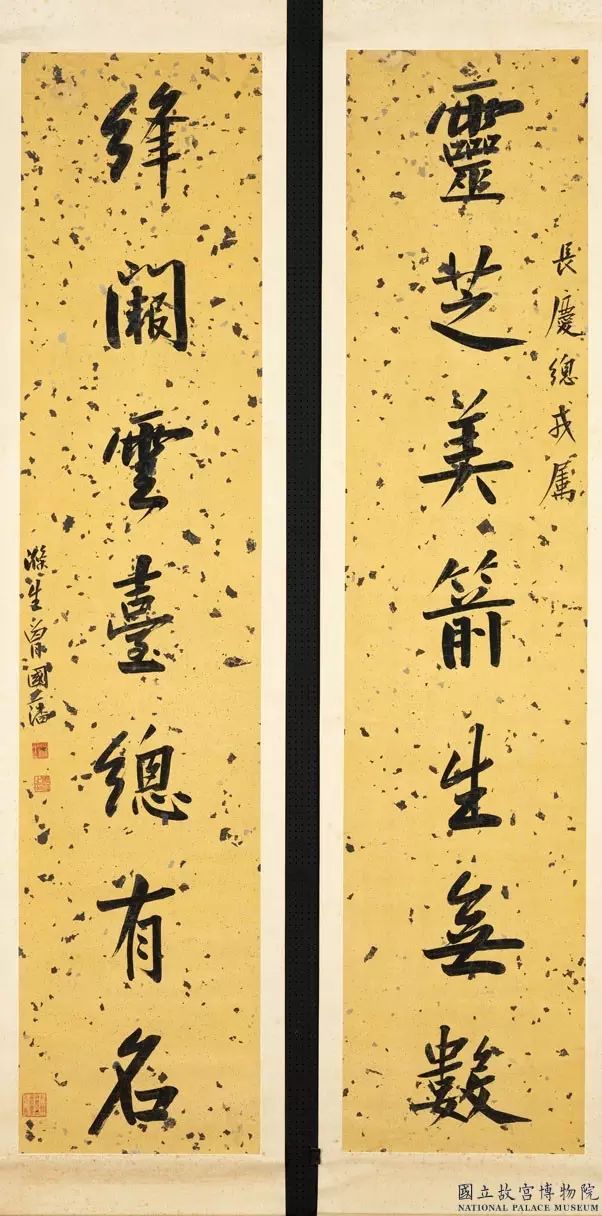 長慶總戎屬
靈芝美箭生無數
絳闕雲臺總有名
滌生曾國藩
國立故宮博物院
NATIONAL PALACE MUSEUM